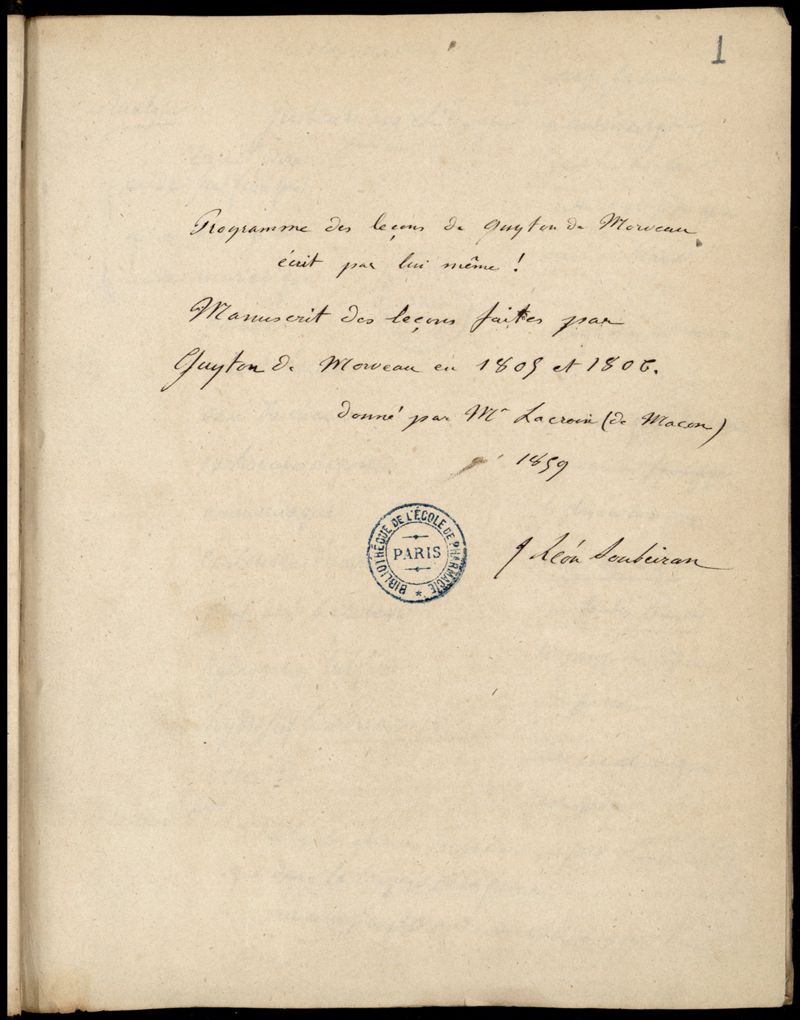 1
Programme des leçons de Guyton de Morveau
écrit par lui même !
Manuscrit des leçons faites par
Guyton de Morveau en 1805 et 1806.
donné par Mr Lacroix (de Macon)
1859
J Léon Soubeiran
BIBLIOTHÈQUE DE L'ÉCOLE DE PHARMACIE
PARIS